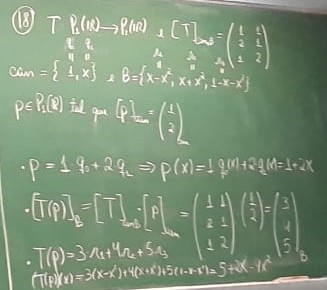 (18) T P₁(ℝ)→P₂(ℝ) e [T]canB = (1 1
2 1
1 2)
q₀ q₁
can = {1, x} e B = {x-x², x+x², 1-x-x²}
p∈P₁(ℝ) tal que [p]can = (1
2)can
· p = 1q₀ + 2q₁ ⇒ p(x) = 1q₀(x) + 2q₁(x) = 1+2x
· [T(p)]B = [T]canB · [p]can = (1 1
2 1
1 2) (1
2) = (3
4
5)B
· T(p) = 3r₁ + 4r₂ + 5r₃
(T(p))(x) = 3(x-x²) + 4(x+x²) + 5(1-x-x²) = 5+2x-4x²